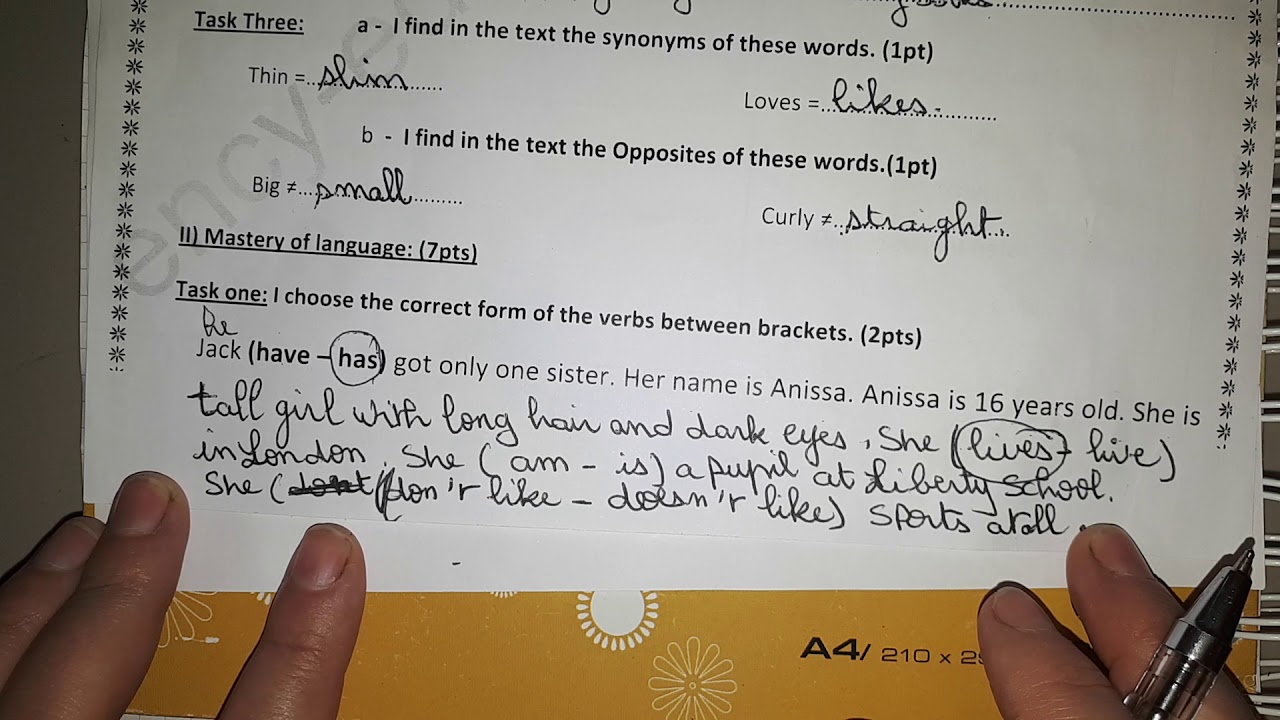 Task Three: a - I find in the text the synonyms of these words. (1pt)
Thin =..slim...... Loves =...likes.............
b - I find in the text the Opposites of these words.(1pt)
Big ≠...small......... Curly ≠..straight...
II) Mastery of language: (7pts)
Task one: I choose the correct form of the verbs between brackets. (2pts)
he
Jack (have – has) got only one sister. Her name is Anissa. Anissa is 16 years old. She is
tall girl with long hair and dark eyes, She (lives - live)
in London. She (am - is) a pupil at Liberty school.
She (don'r like - doesn'r like) sports atall.
A4/ 210 x 29